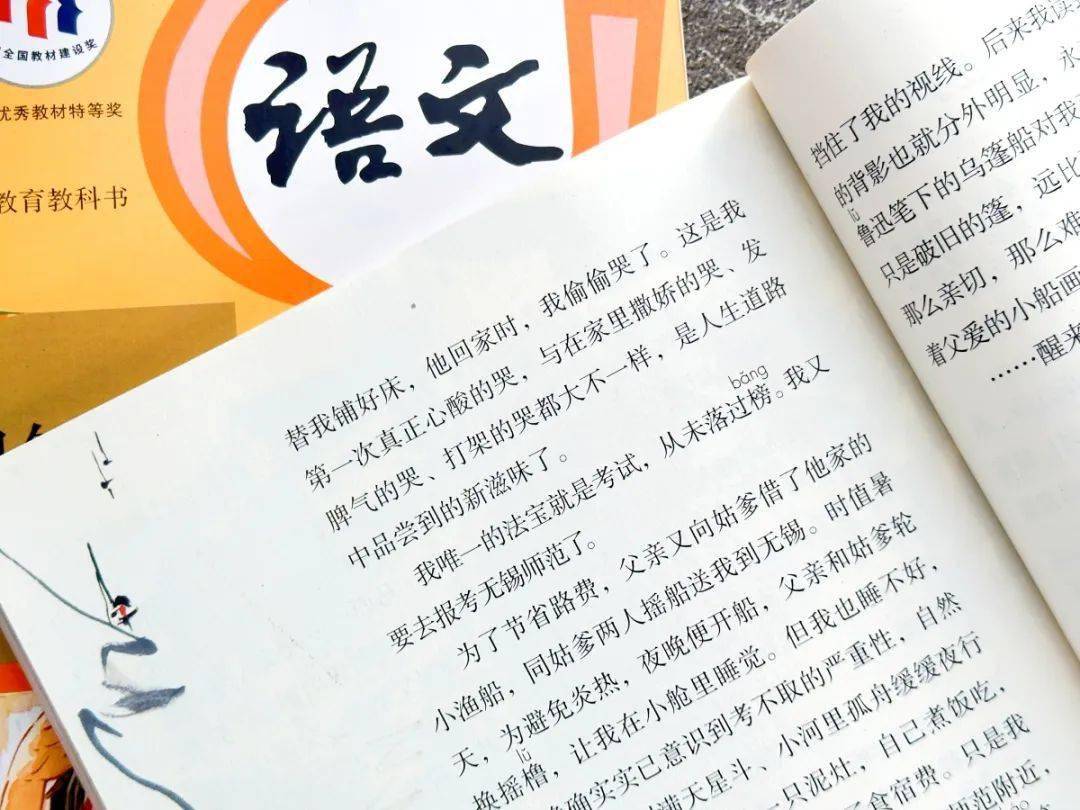 全国教材建设奖
优秀教材特等奖
教育教科书
语文
替我铺好床，他回家时，我偷偷哭了。这是我
第一次真正心酸的哭，与在家里撒娇的哭、发
脾气的哭、打架的哭都大不一样，是人生道路
中品尝到的新滋味了。
bǎng
我唯一的法宝就是考试，从未落过榜。我又
要去报考无锡师范了。
为了节省路费，父亲又向姑爹借了他家的
小渔船，同姑爹两人摇船送我到无锡。时值暑
天，为避免炎热，夜晚便开船，父亲和姑爹轮
lǔ
换摇橹，让我在小舱里睡觉。但我也睡不好，
确确实实已意识到考不取的严重性，自然
满天星斗、小河里孤舟缓缓夜行
只泥灶，自己煮饭吃，
食宿费。只是我
范附近，
挡住了我的视线。后来我读
的背影也就分外明显，永
lǔ
鲁迅笔下的乌篷船对我
只是破旧的篷，远比
那么亲切，那么难
着父爱的小船画
……醒来